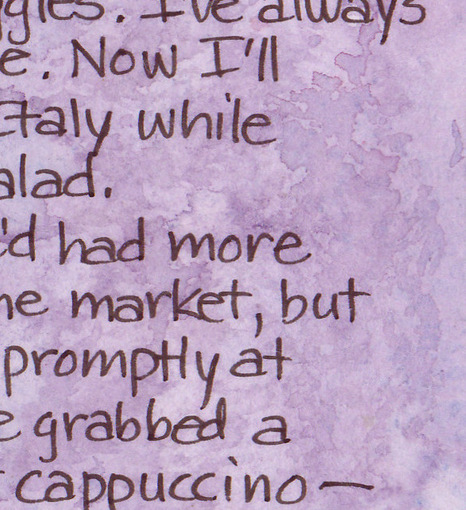 ggles. I've always
e. Now I'll
Italy while
alad.
'd had more
he market, but
promptly at
e grabbed a
cappuccino —